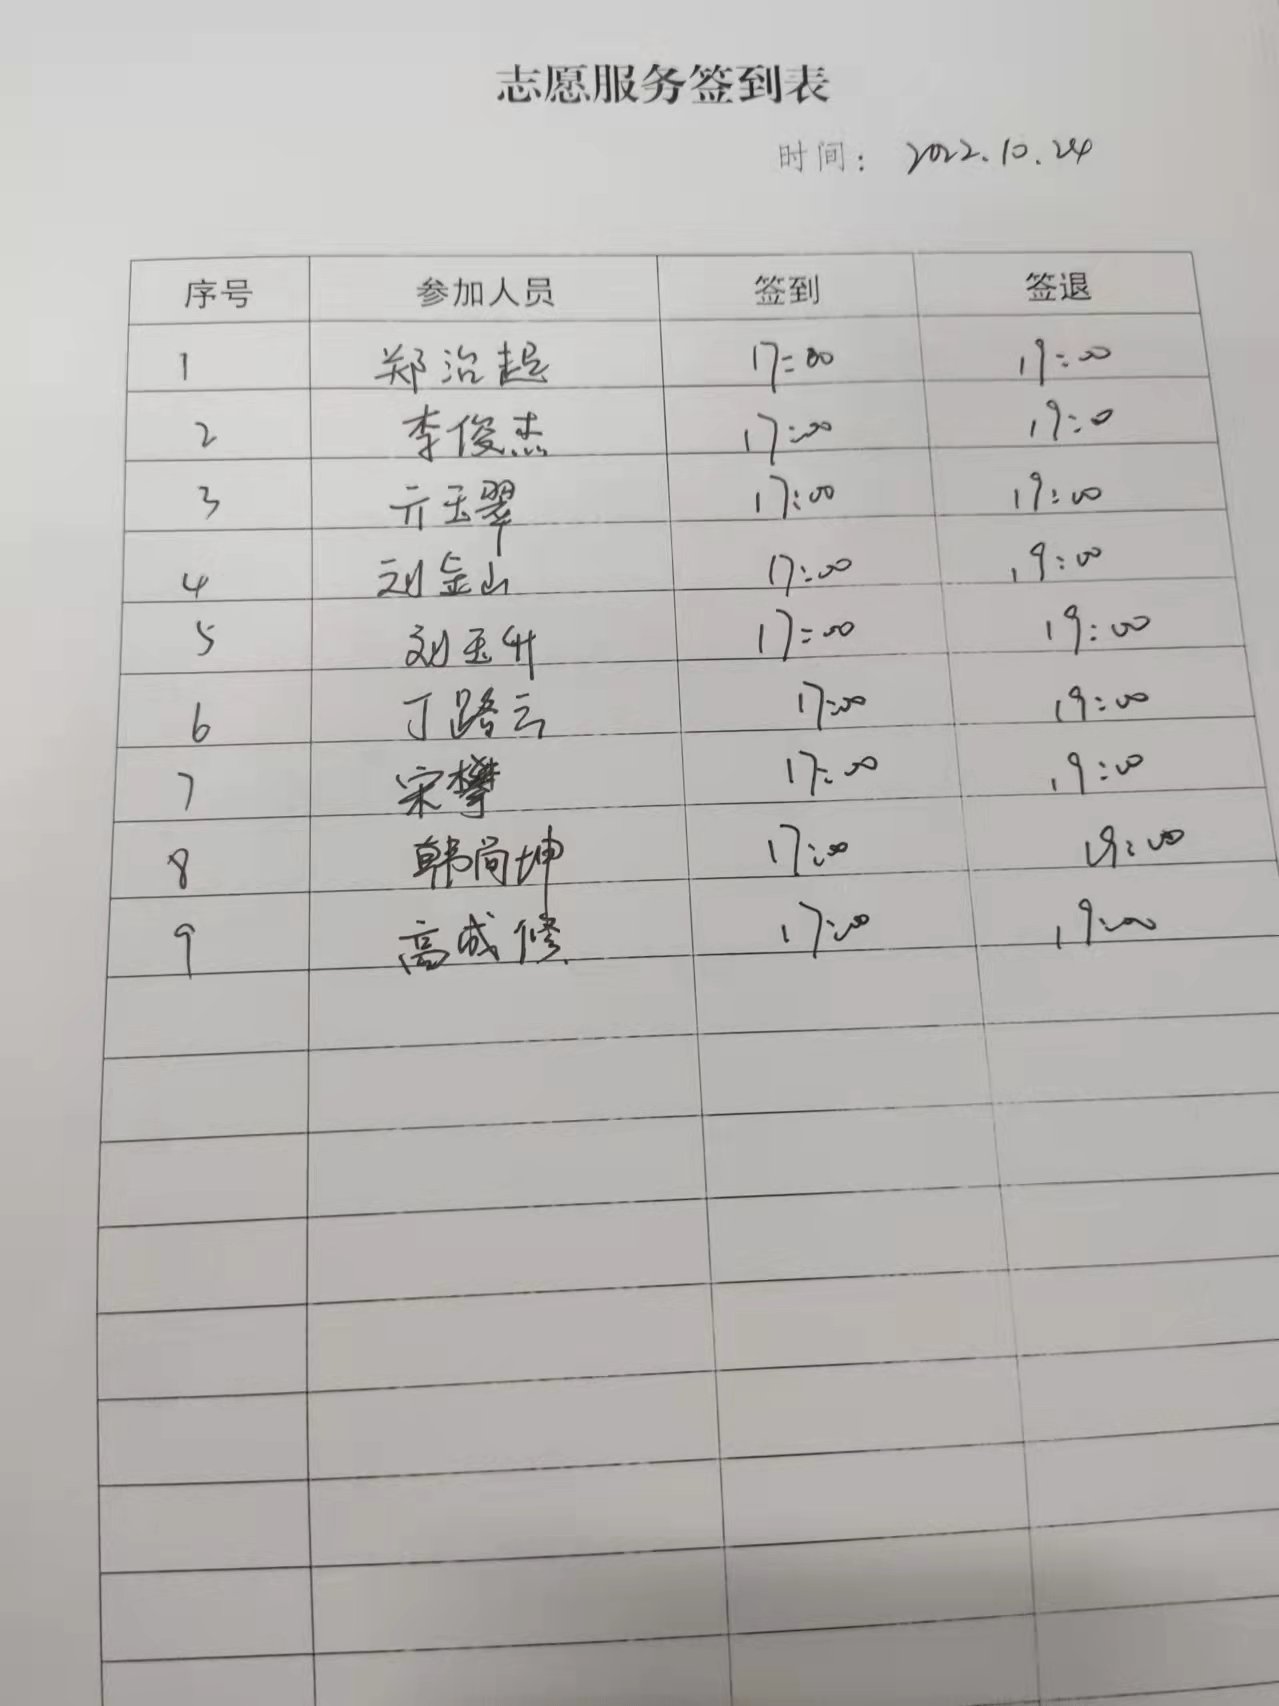 志愿服务签到表
时间： 2022.10.24
序号 参加人员 签到 签退
1 郑治起 17:00 19:00
2 李俊杰 17:00 19:0
3 亓玉翠 17:00 19:00
4 刘金山 17:00 19:00
5 刘玉升 17:00 19:00
6 丁路云 17:00 19:00
7 宋攀 17:00 19:00
8 韩尚坤 17:00 19:00
9 高成修 17:00 19:00